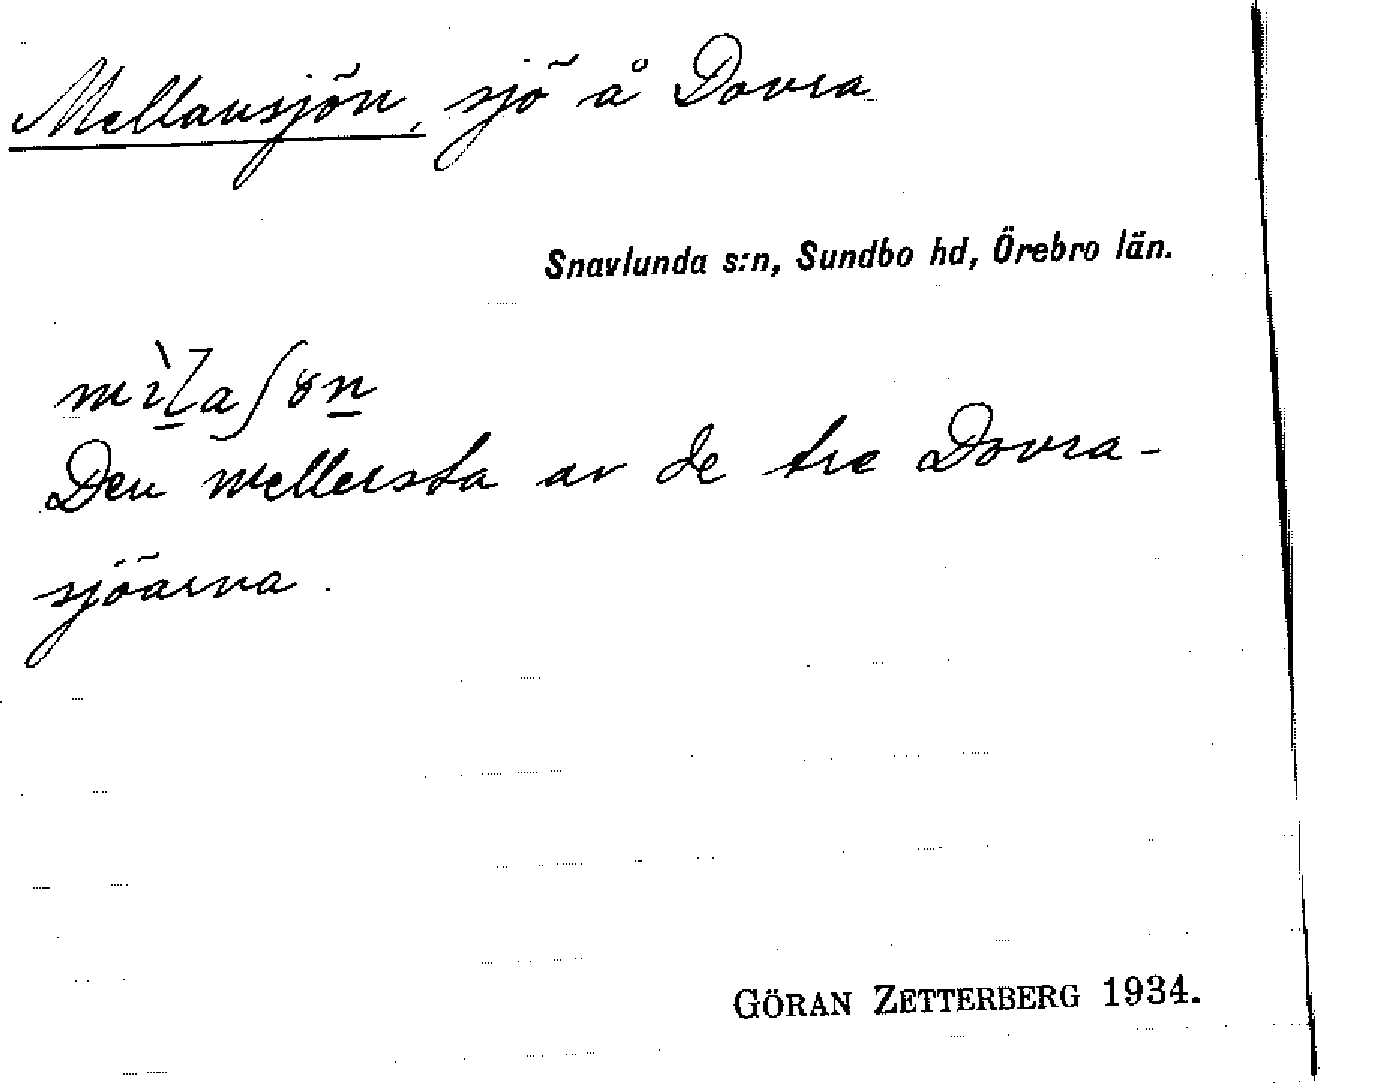 Mellansjön, sjö å Dovra
Snavlunda s:n, Sundbo hd, Örebro län.
Den mellersta av de tre Dovra-
sjöarna.
GÖRAN ZETTERBERG 1934.